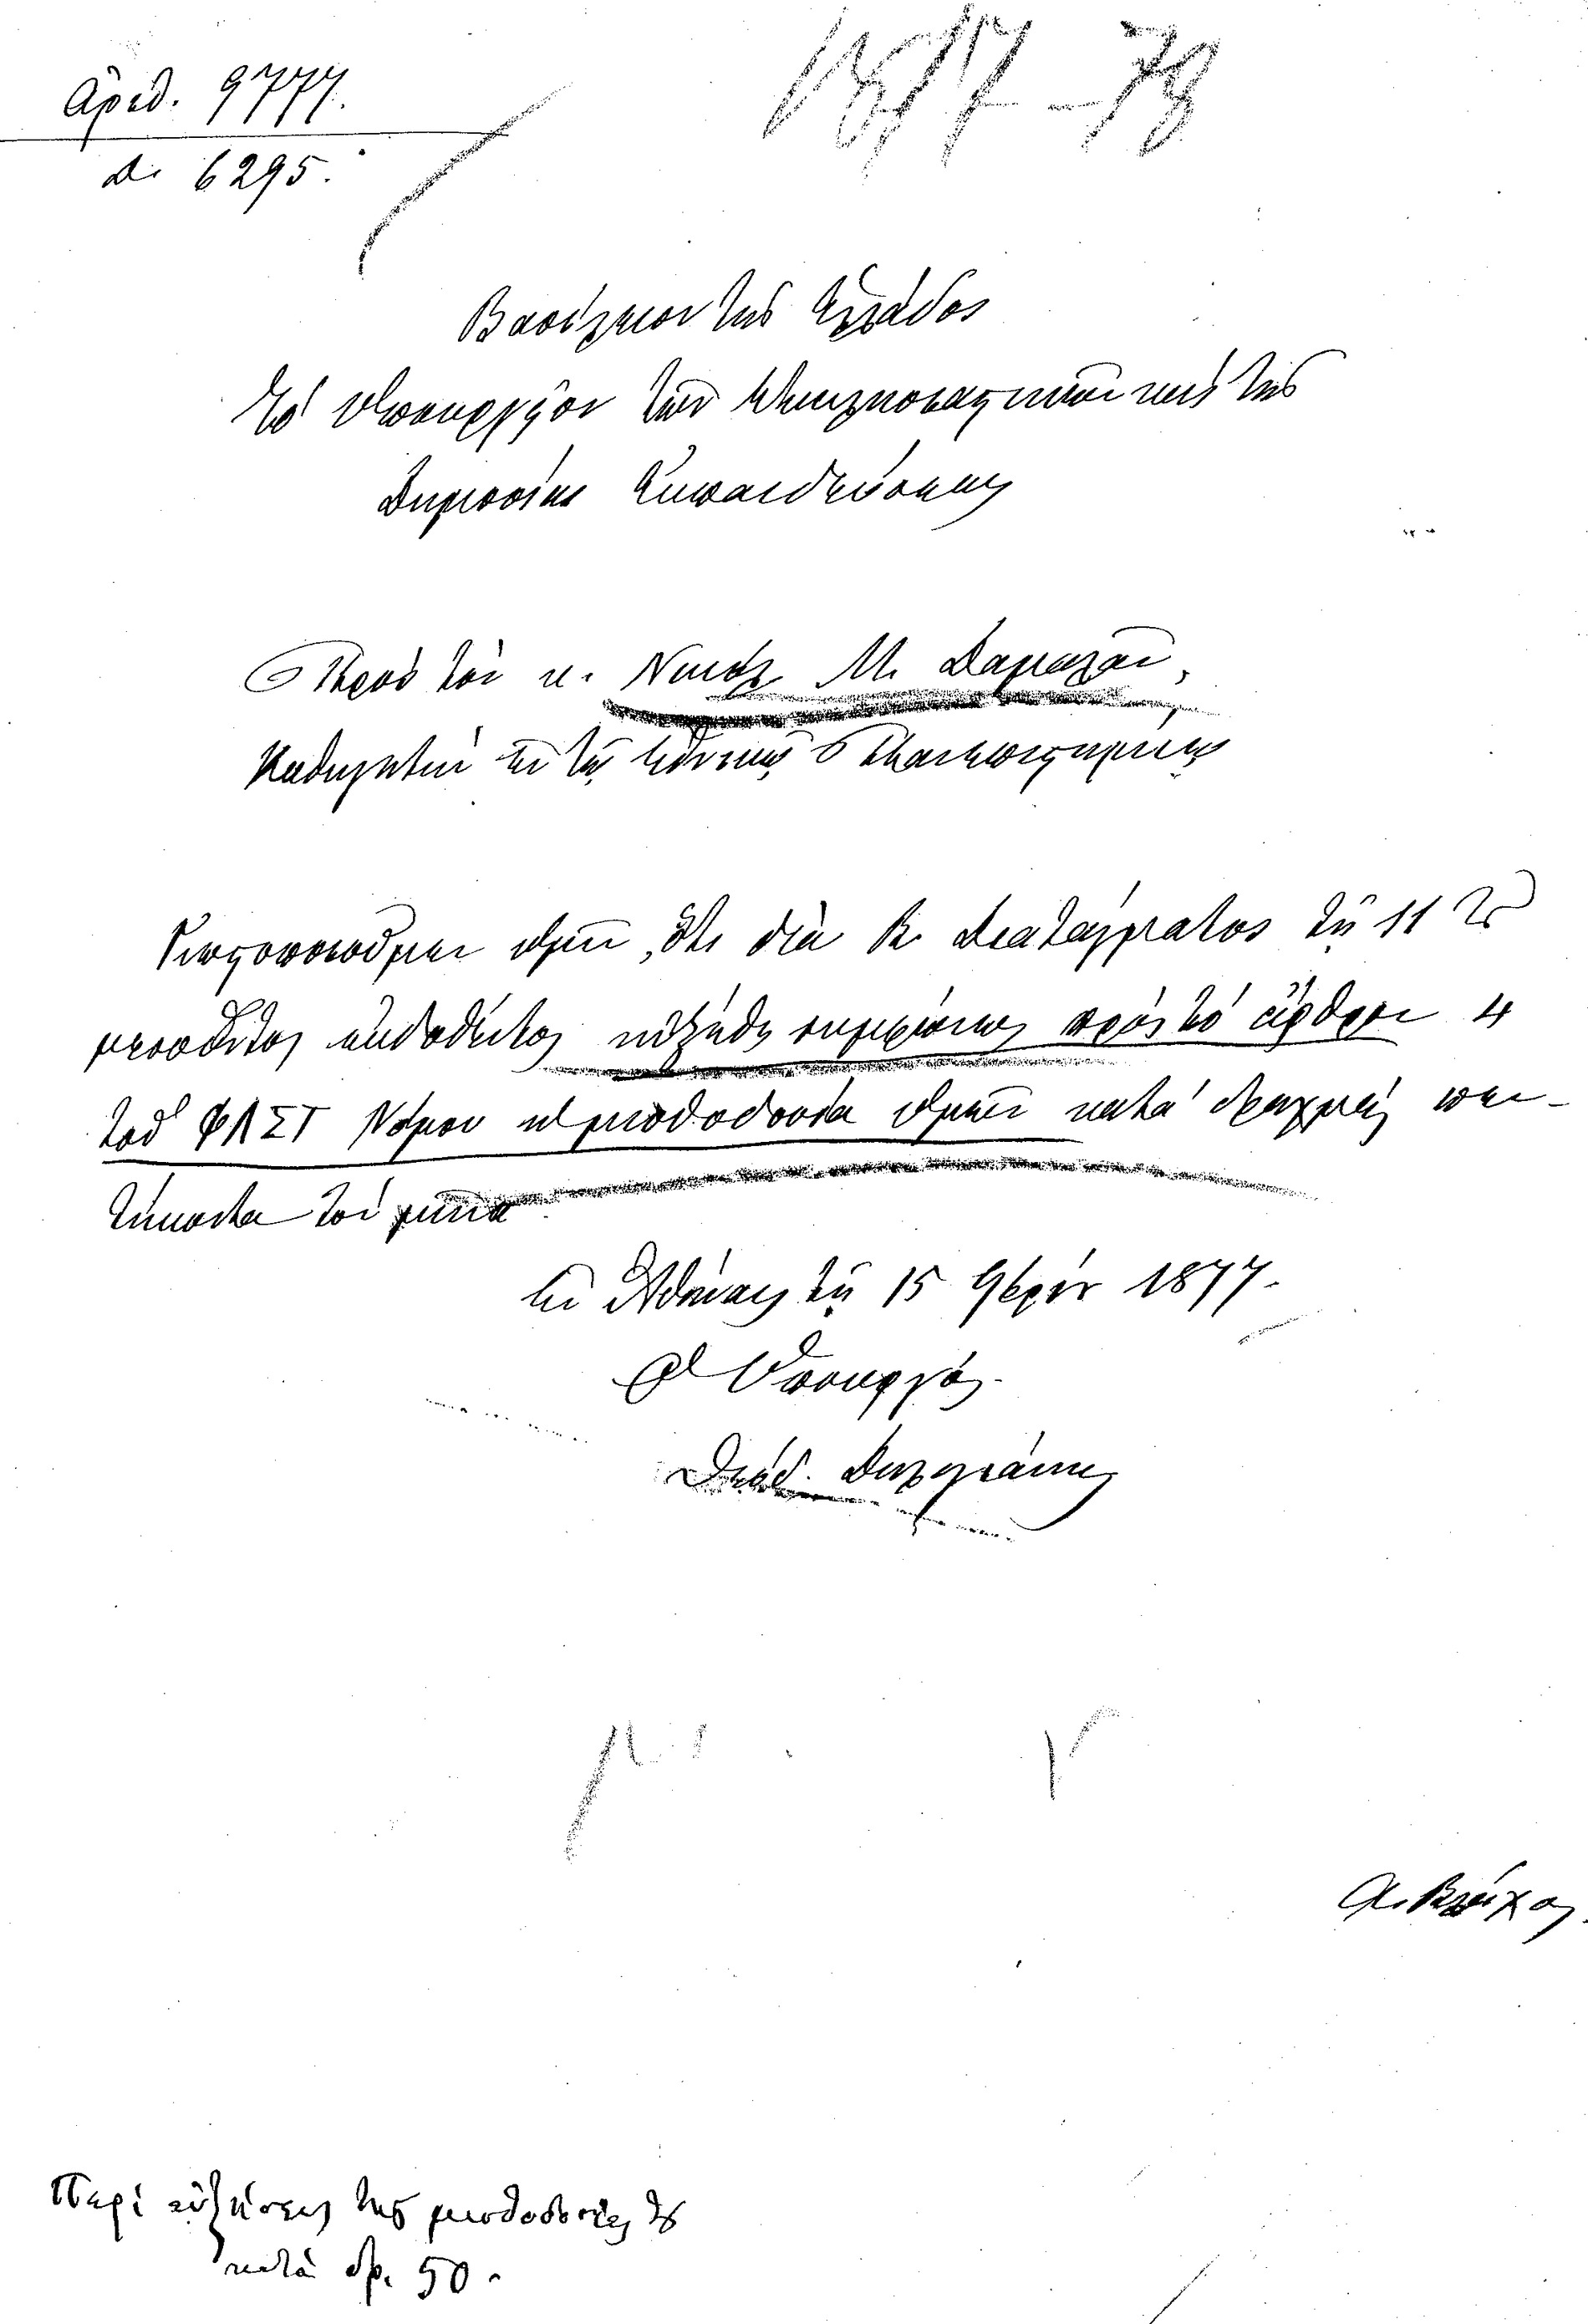 1877-78
Ἀριθ. 9777.
Δ. 6295.
Βασίλειον τῆς Ἑλλάδος
Τό Ὑπουργεῖον τῶν Ἐκκλησιαστικῶν καί τῆς
Δημοσίας Ἐκπαιδεύσεως
Πρός τόν κ. Νικόλ. Μ. Δαμαλᾶν,
Καθηγητήν ἐν τῷ Ἐθνικῷ Πανεπιστημίῳ
Γνωστοποιοῦμεν ὑμῖν, ὅτι διά Β. Διατάγματος τῇ 11 τȣ͂
μεσοῦντος ἐκδοθέντος ηὐξήθη συμφώνως πρός τό ἄρθρον 4
τοῦ ΦΛΣΤ Νόμου ἡ μισθοδοσία ὑμῶν κατά δραχμάς πεν-
τήκοντα τόν μῆνα.
Ἐν Ἀθήναις τῇ 15 9βρίου 1877.
Ὁ Ὑπουργός.
Θεόδ. Δεληγιάννης
Α. Βλάχος.
Περί αὐξήσεως τῆς μισθοδοσίας τȣ
κατά δρ. 50.